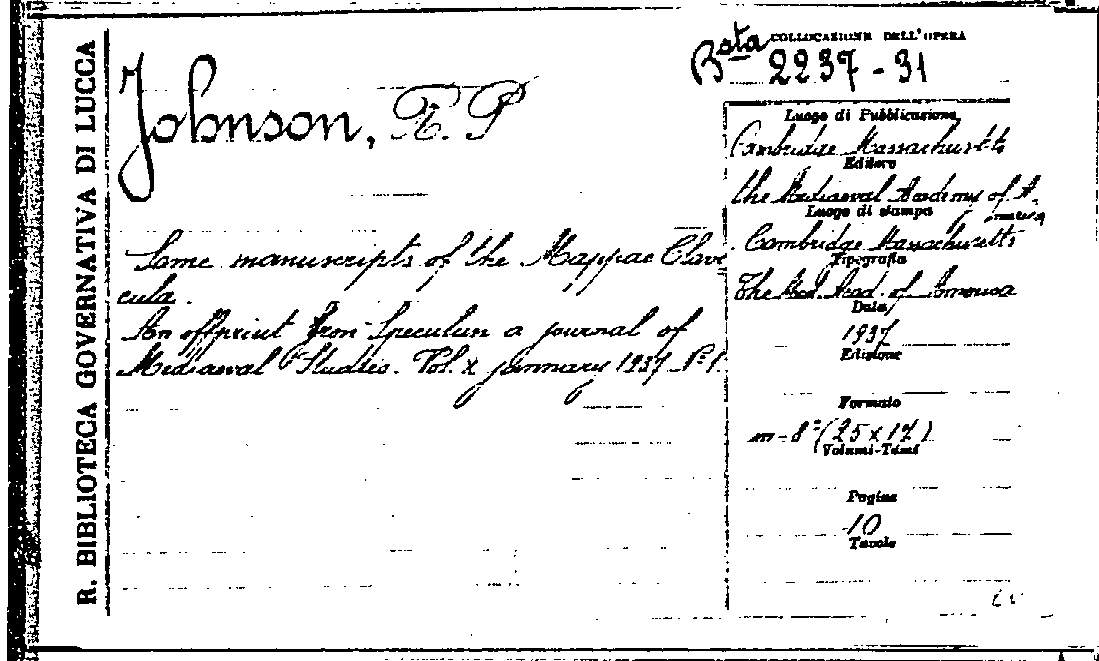 R. BIBLIOTECA GOVERNATIVA DI LUCCA
Johnson, R. P
COLLOCAZIONE DELL'OPERA
Bsta 2237-31
Some manuscripts of the Mappae Clave
cula.
An offprint from Speculun a journal of
Mediaeval Studies. Vol. X january 1937 N° 1.
Luogo di Pubblicazione
Cambridge Massachusetts
Editore
the Mediaeval Academy of A.
merica
Luogo di stampa
Cambridge Massachusetts
Tipografia
The Med. Acad. of America
Data
1937
Edizione
Formato
in-8° (25x17)
Volumi-Tomi
Pagine
10
Tavole